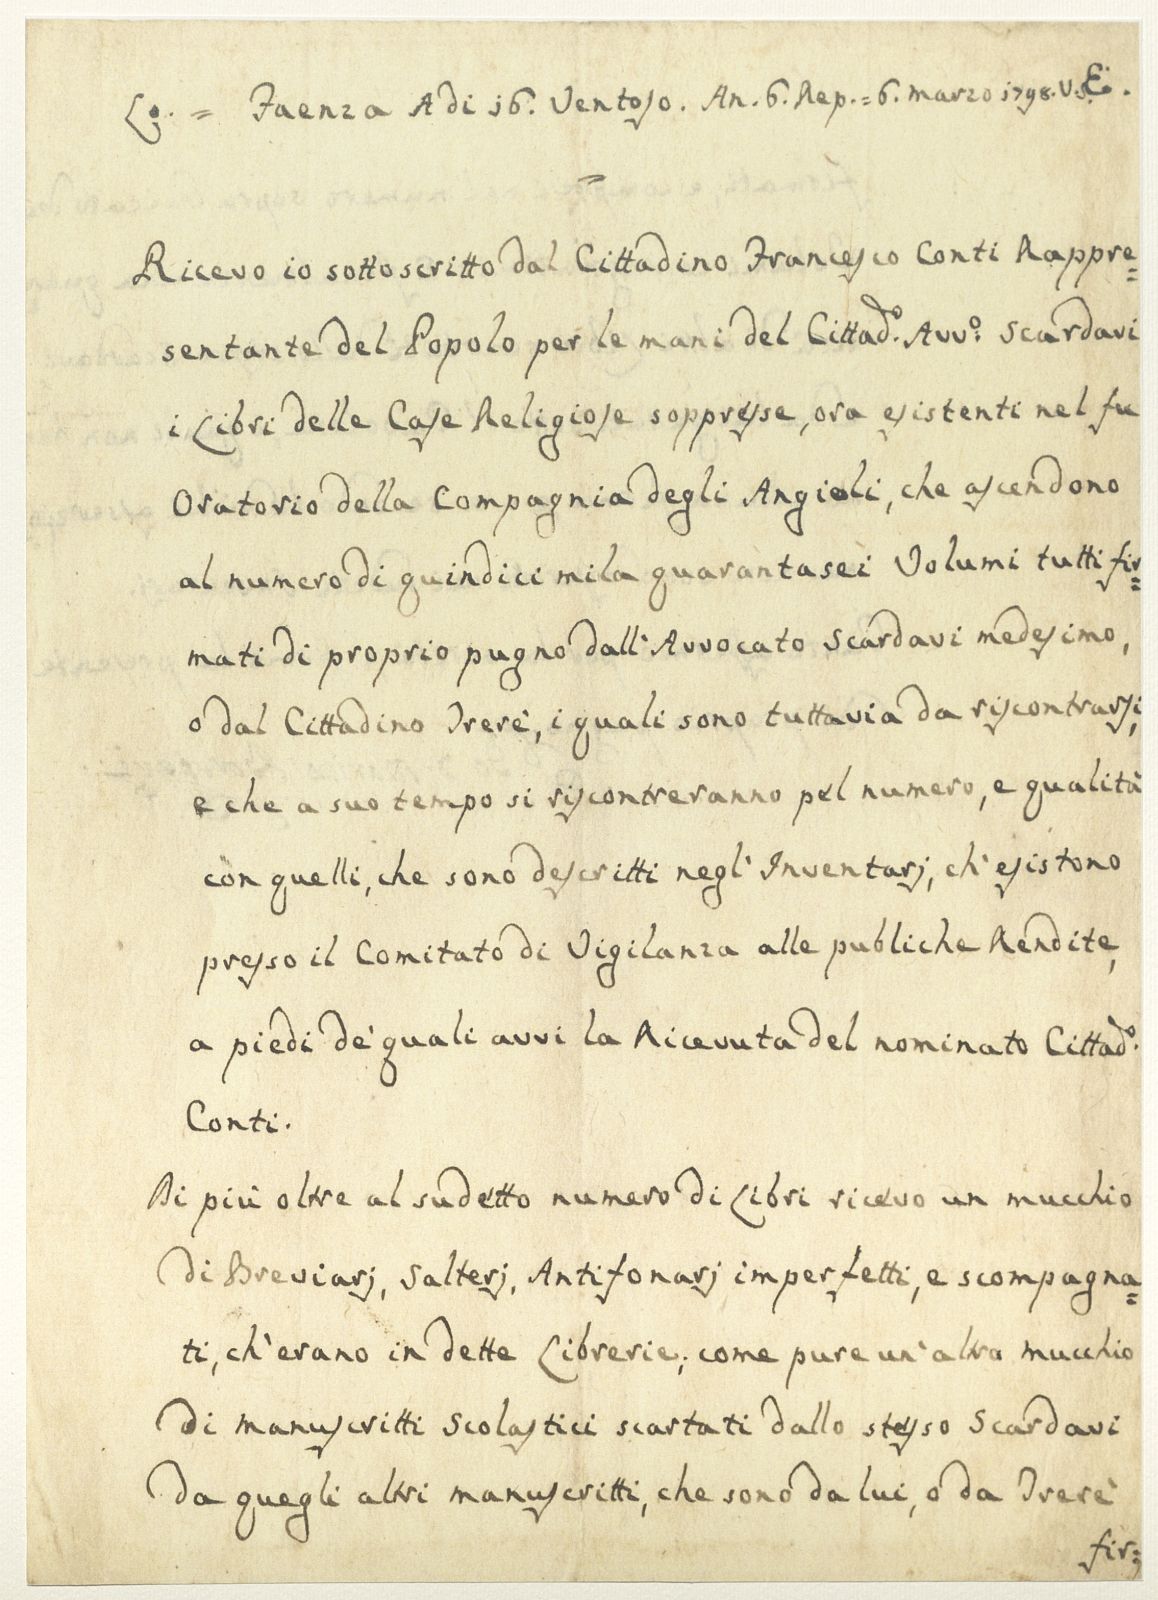 = Faenza A di 16. Ventoso. An. 6. Rep. = 6. marzo 1798. V.S.E.
=
Ricevo io sottoscritto dal Cittadino Francesco Conti Rappre=
sentante del Popolo per le mani del Cittad.º Avv.º Scardavi
i Libri delle Case Religiose soppresse, ora esistenti nel fu
Oratorio della Compagnia degli Angioli, che ascendono
al numero di quindici mila quarantasei Volumi tutti fir=
mati di proprio pugno dall' Avvocato Scardavi medesimo,
o dal Cittadino Trerè, i quali sono tuttavia da riscontrarsi,
e che a suo tempo si riscontreranno pel numero, e qualità
con quelli, che sono descritti negl' Inventarj, ch' esistono
presso il Comitato di Vigilanza alle publiche Rendite,
a piedi de' quali avvi la Ricevuta del nominato Cittad.º
Conti.
Di più oltre al sudetto numero di Libri ricevo un mucchio
di Breviarj, Salterj, Antifonarj imperfetti, e scompagna=
ti, ch' erano in dette Librerie; come pure un' altro mucchio
di manuscritti Scolastici scartati dallo stesso Scardavi
da quegli altri manuscritti, che sono da lui, o da Trerè
fir=